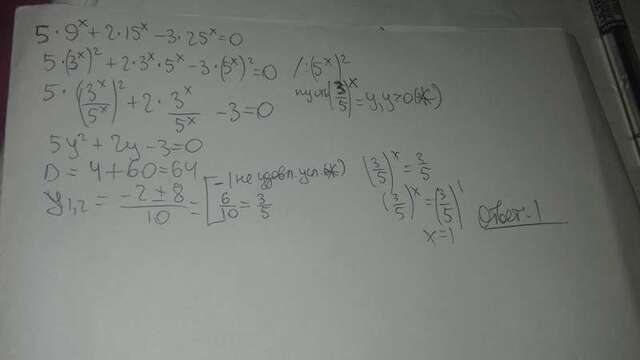 5·9^x+2·15^x-3·25^x=0
5·(3^x)^2+2·3^x·5^x-3·(5^x)^2=0 /:(5^x)^2
5·(3^x/5^x)^2+2·3^x/5^x-3=0 пусть (3/5)^x=y, y>0(*)
5y^2+2y-3=0
D=4+60=64
y1,2=(-2±8)/10=[-1 не удовл. усл. (*)
6/10=3/5
(3/5)^x=3/5
(3/5)^x=(3/5)^1
x=1
Ответ: 1